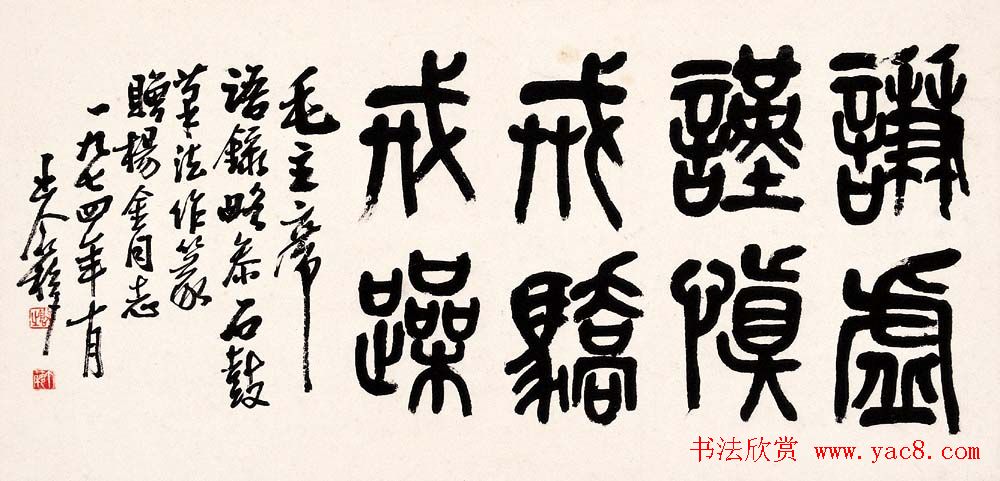 謙虛
謹慎
戒驕
戒躁
毛主席
語錄略參石鼓
筆法作篆
贈楊金同志
一九七四年十月
王个簃
书法欣赏 www.yac8.com